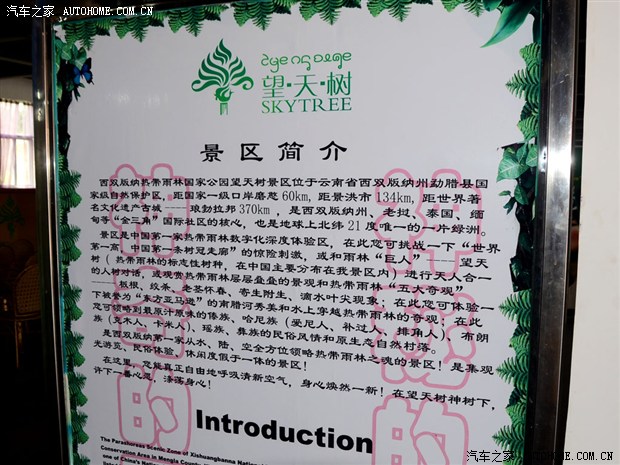 汽车之家 AUTOHOME.COM.CN
望·天·树
SKYTREE
景区简介
西双版纳热带雨林国家公园望天树景区位于云南省西双版纳州勐腊县国
家级自然保护区，距国家一级口岸磨憨60km，距景洪市134km，距世界著
名文化遗产古城----琅勃拉邦370km，是西双版纳州、老挝、泰国、缅
甸等“金三角”国际社区的核心，也是地球上北纬21度唯一的一片绿洲。
景区是中国第一家热带雨林数字化深度体验区，在此您可挑战一下“世界
第一高，中国第一条树冠走廊”的惊险刺激，或和雨林“巨人”----望天
树（热带雨林的标志性树种，在中国主要分布在我景区内）进行天人合一
的人树对话，或观赏热带雨林层层叠叠的景观和热带雨林“五大奇观”
----板根、绞杀、老茎怀春、寄生附生、滴水叶尖现象；在此您可体验一
下被誉为“东方亚马逊”的南腊河秀美和水上穿越热带雨林的奇观；在此
您可领略到最原汁原味的傣族、哈尼族（爱尼人、补过人、排角人）、布朗
族（克木人、卡米人）、瑶族、彝族的民俗风情和原生态自然村落。
是西双版纳第一家从水、陆、空全方位领略热带雨林之魂的景区！是集观
光游览、民俗体验、休闲度假于一体的景区！
在这里，您能真正自由地呼吸清新空气，身心焕然一新！在望天树神树下，
许下一番心愿，涤荡身心！
Introduction
The Parashorea Scenic Zone of Xishuangbanna Nation
Conservation Area in Mengla County
one of China's Nation
汽车之家 AUTOHOME.COM.CN